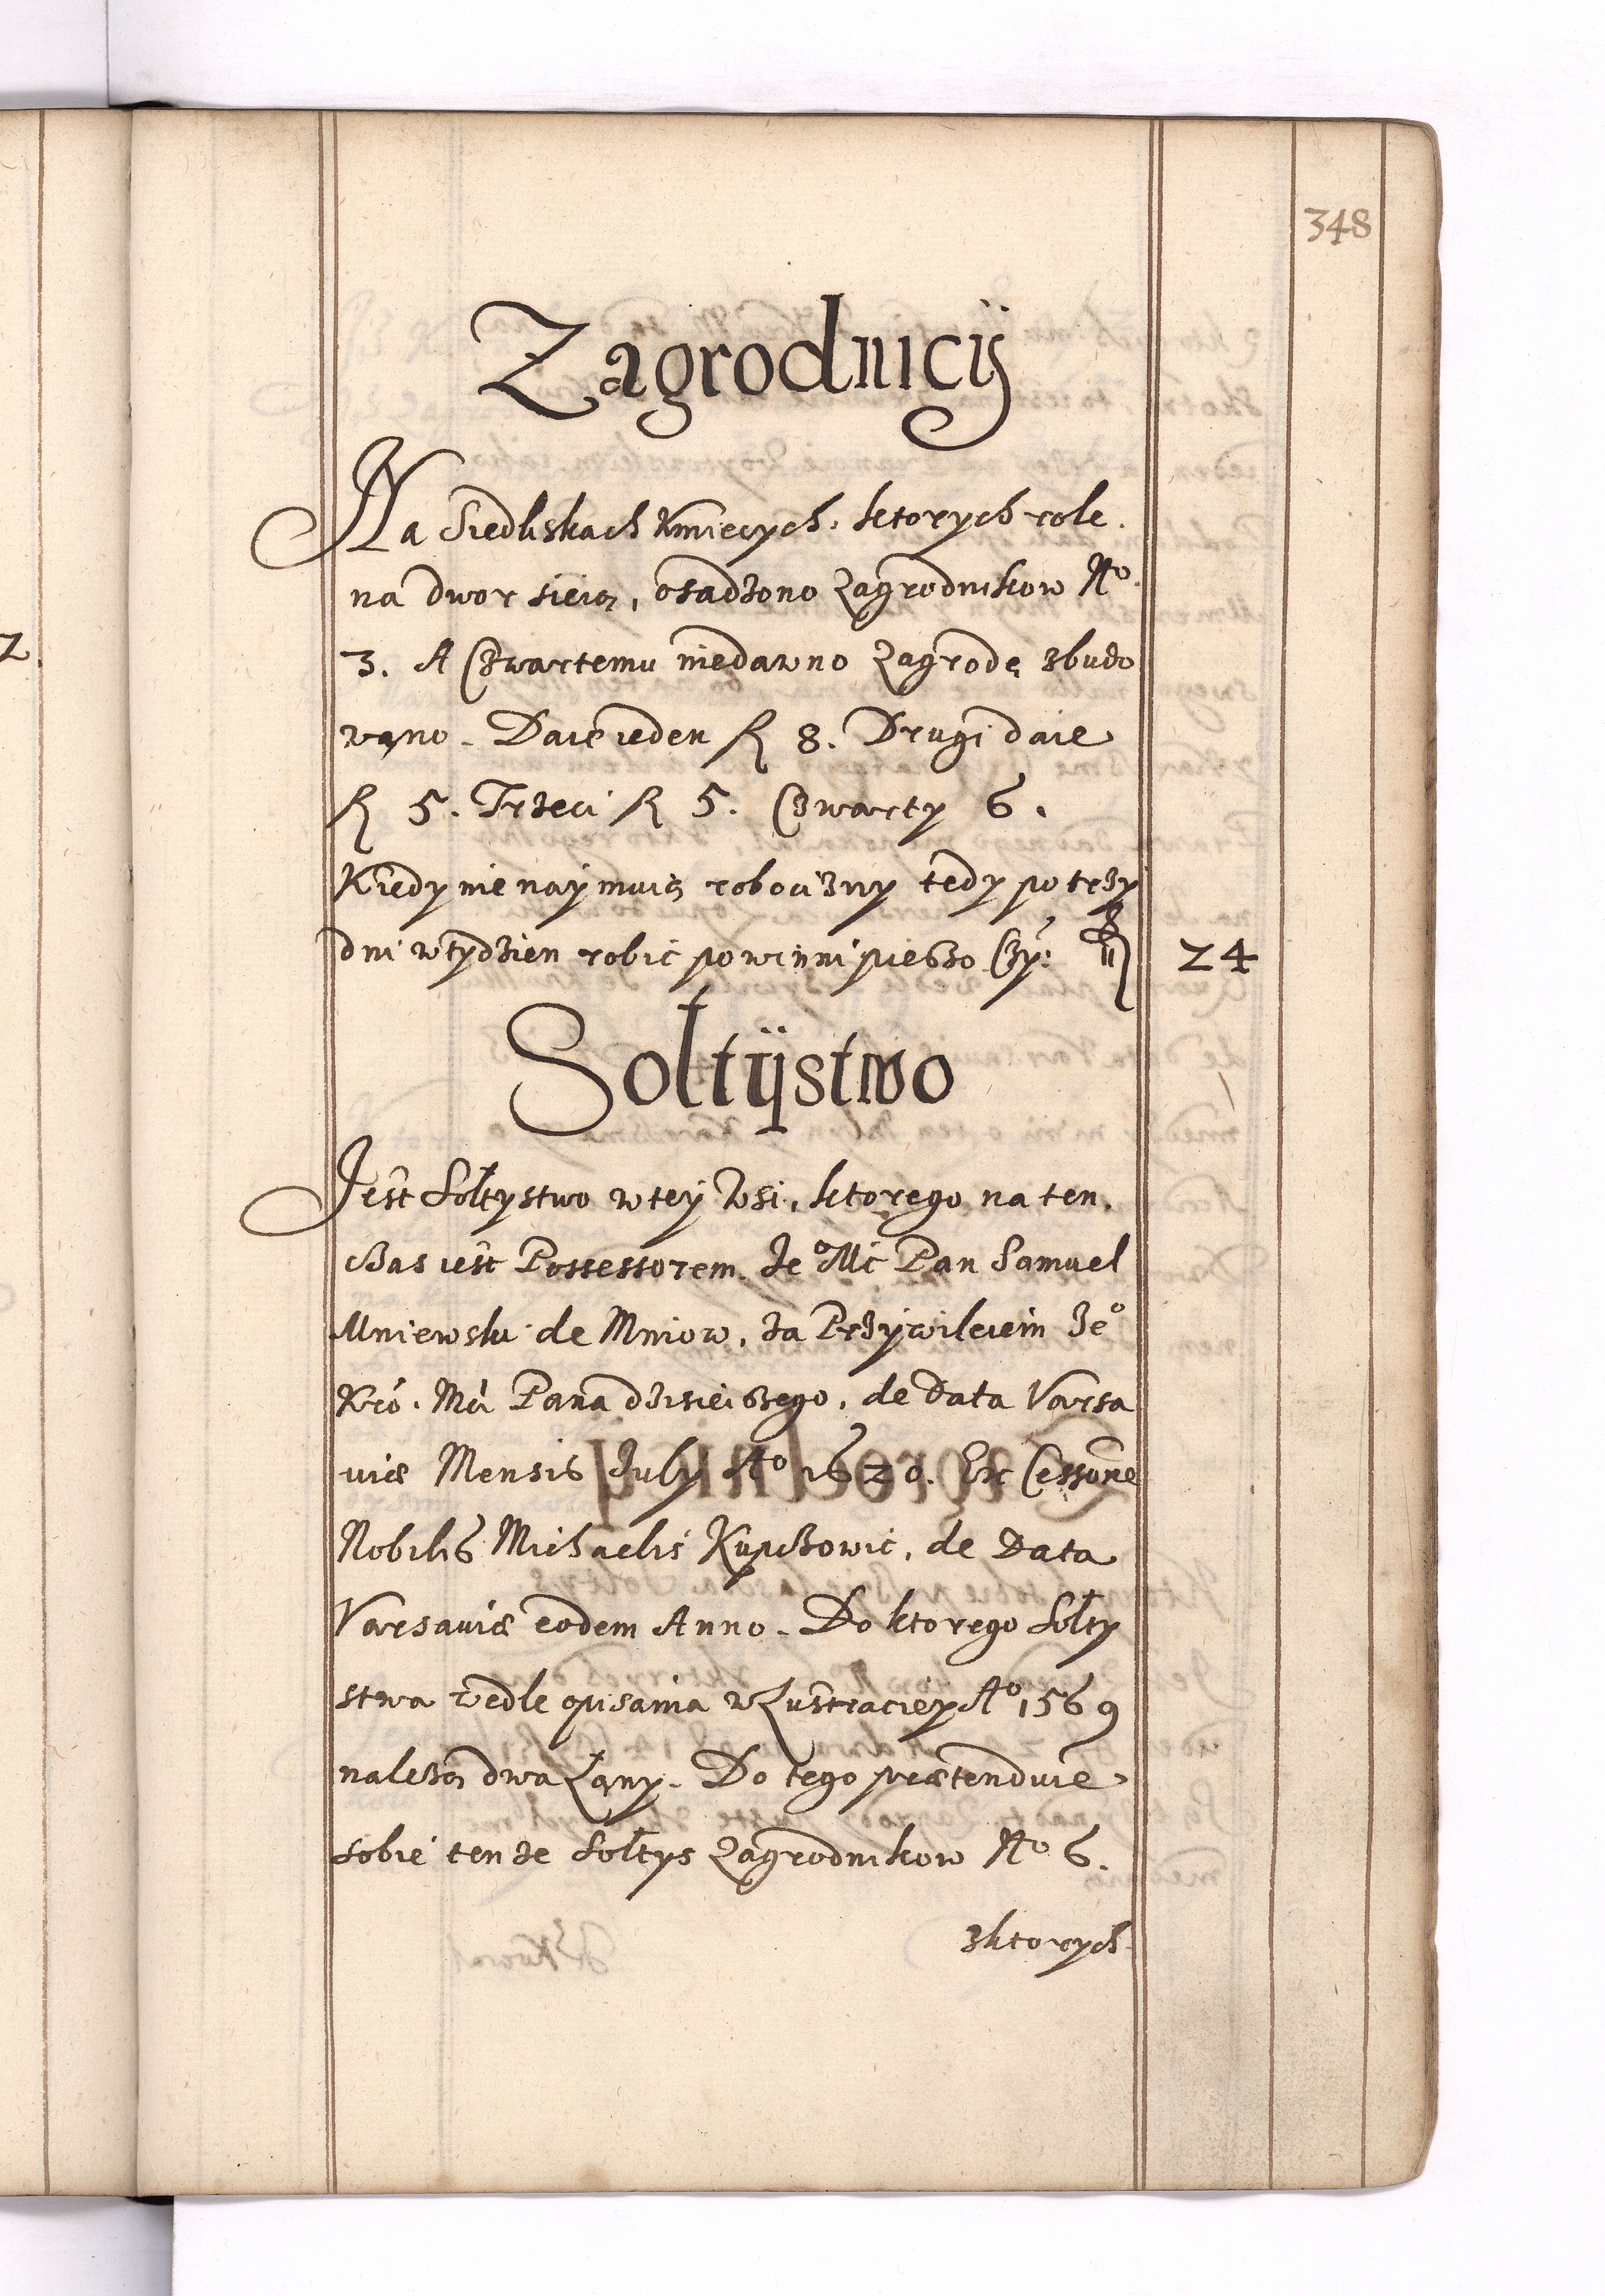 348
Zagrodnicÿ
Na Siedliskach Kmiecych, ktorych role
na dwor sieią, osadzono Zagrodnikow No
3. A Czwartemu niedawno Zagrodę zbudo
wano. Daie ieden fl 8. Drugi daie
fl 5. Trzeci fl 5. Czwarty 6.
Kiedy nie naymuią robocizny tedy po trzy
dni w tydzien robić powinni pieszo Czy: fl 24
Sołtÿstwo
Jest Sołtystwo w tey Wsi, ktorego na ten
czas iest Possessorem Je° Mć Pan Samuel
Mniewski de Mniow, za Przywileiem Je°
Kró. Mći Pana dzisieiszego, de data Varsa
viæ Mensis July A° 1620. Ex Cessione
Nobilis Michaelis Kupczowic, de Data
Varsaviæ eodem Anno. Do ktorego Sołty
stwa wedle opisania w Lustraciey A° 1569
nalezą dwa Łany. Do tego prætenduie
sobie tenze Sołtys Zagrodnikow No 6.
zktorych